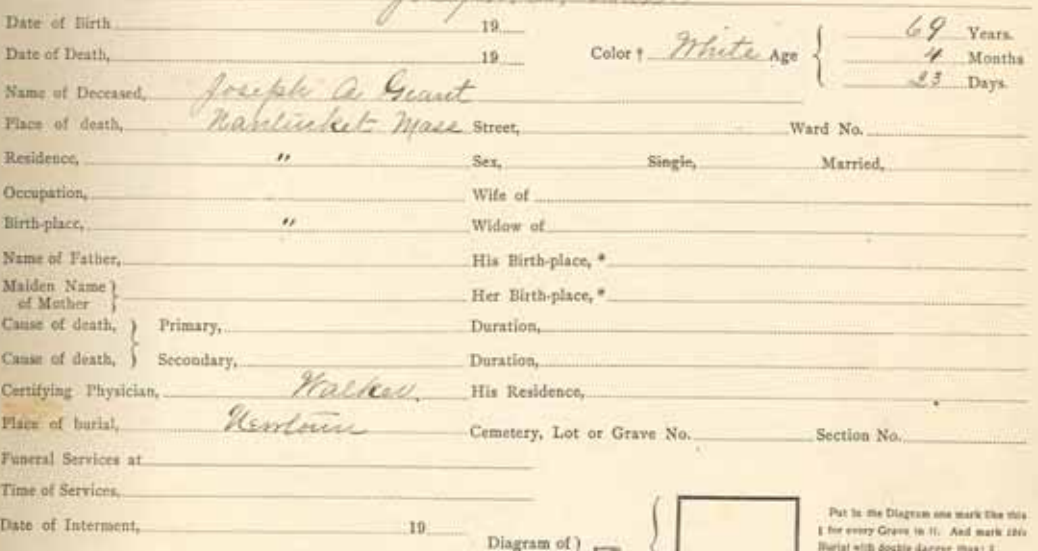 Date of Birth 19
Date of Death, 19 Color † White Age { 69 Years.
4 Months
23 Days.
Name of Deceased, Joseph A Grant
Place of death, Nantucket Mass Street, Ward No.
Residence, " Sex, Single, Married,
Occupation, Wife of
Birth-place, " Widow of
Name of Father, His Birth-place, *
Maiden Name of Mother } Her Birth-place, *
Cause of death, } Primary, Duration,
Cause of death, } Secondary, Duration,
Certifying Physician, Walker. His Residence,
Place of burial, Newtown Cemetery, Lot or Grave No. Section No.
Funeral Services at
Time of Services,
Date of Interment, 19
Diagram of }
Put in the Diagram one mark like this
‡ for every Grave in it. And mark this
Burial with double dagger thus: ‡